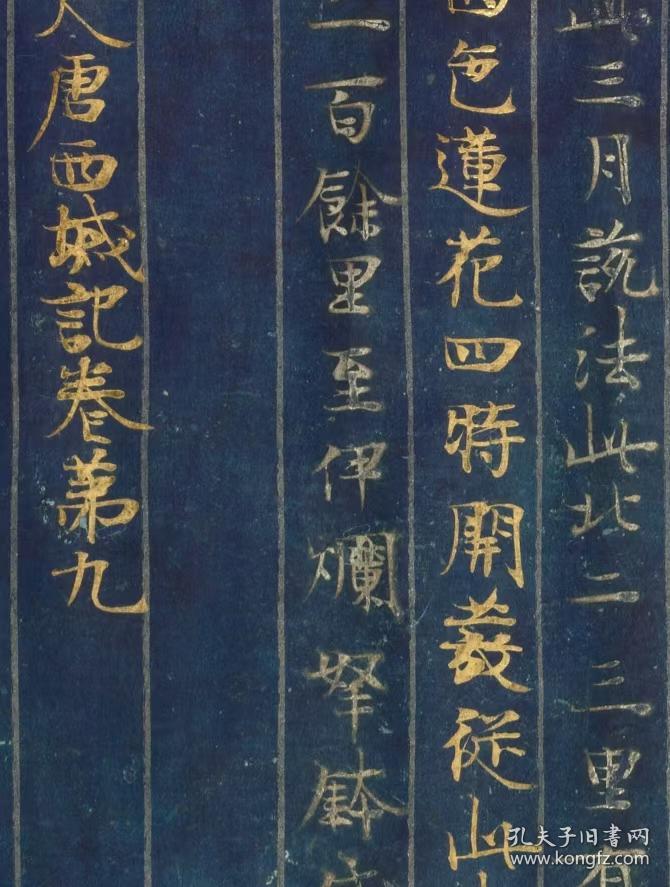 三月説法此北二三里有
色蓮花四時開發從此
一百餘里至伊爛拏鉢
大唐西域記卷第九
孔夫子旧书网
www.kongfz.com